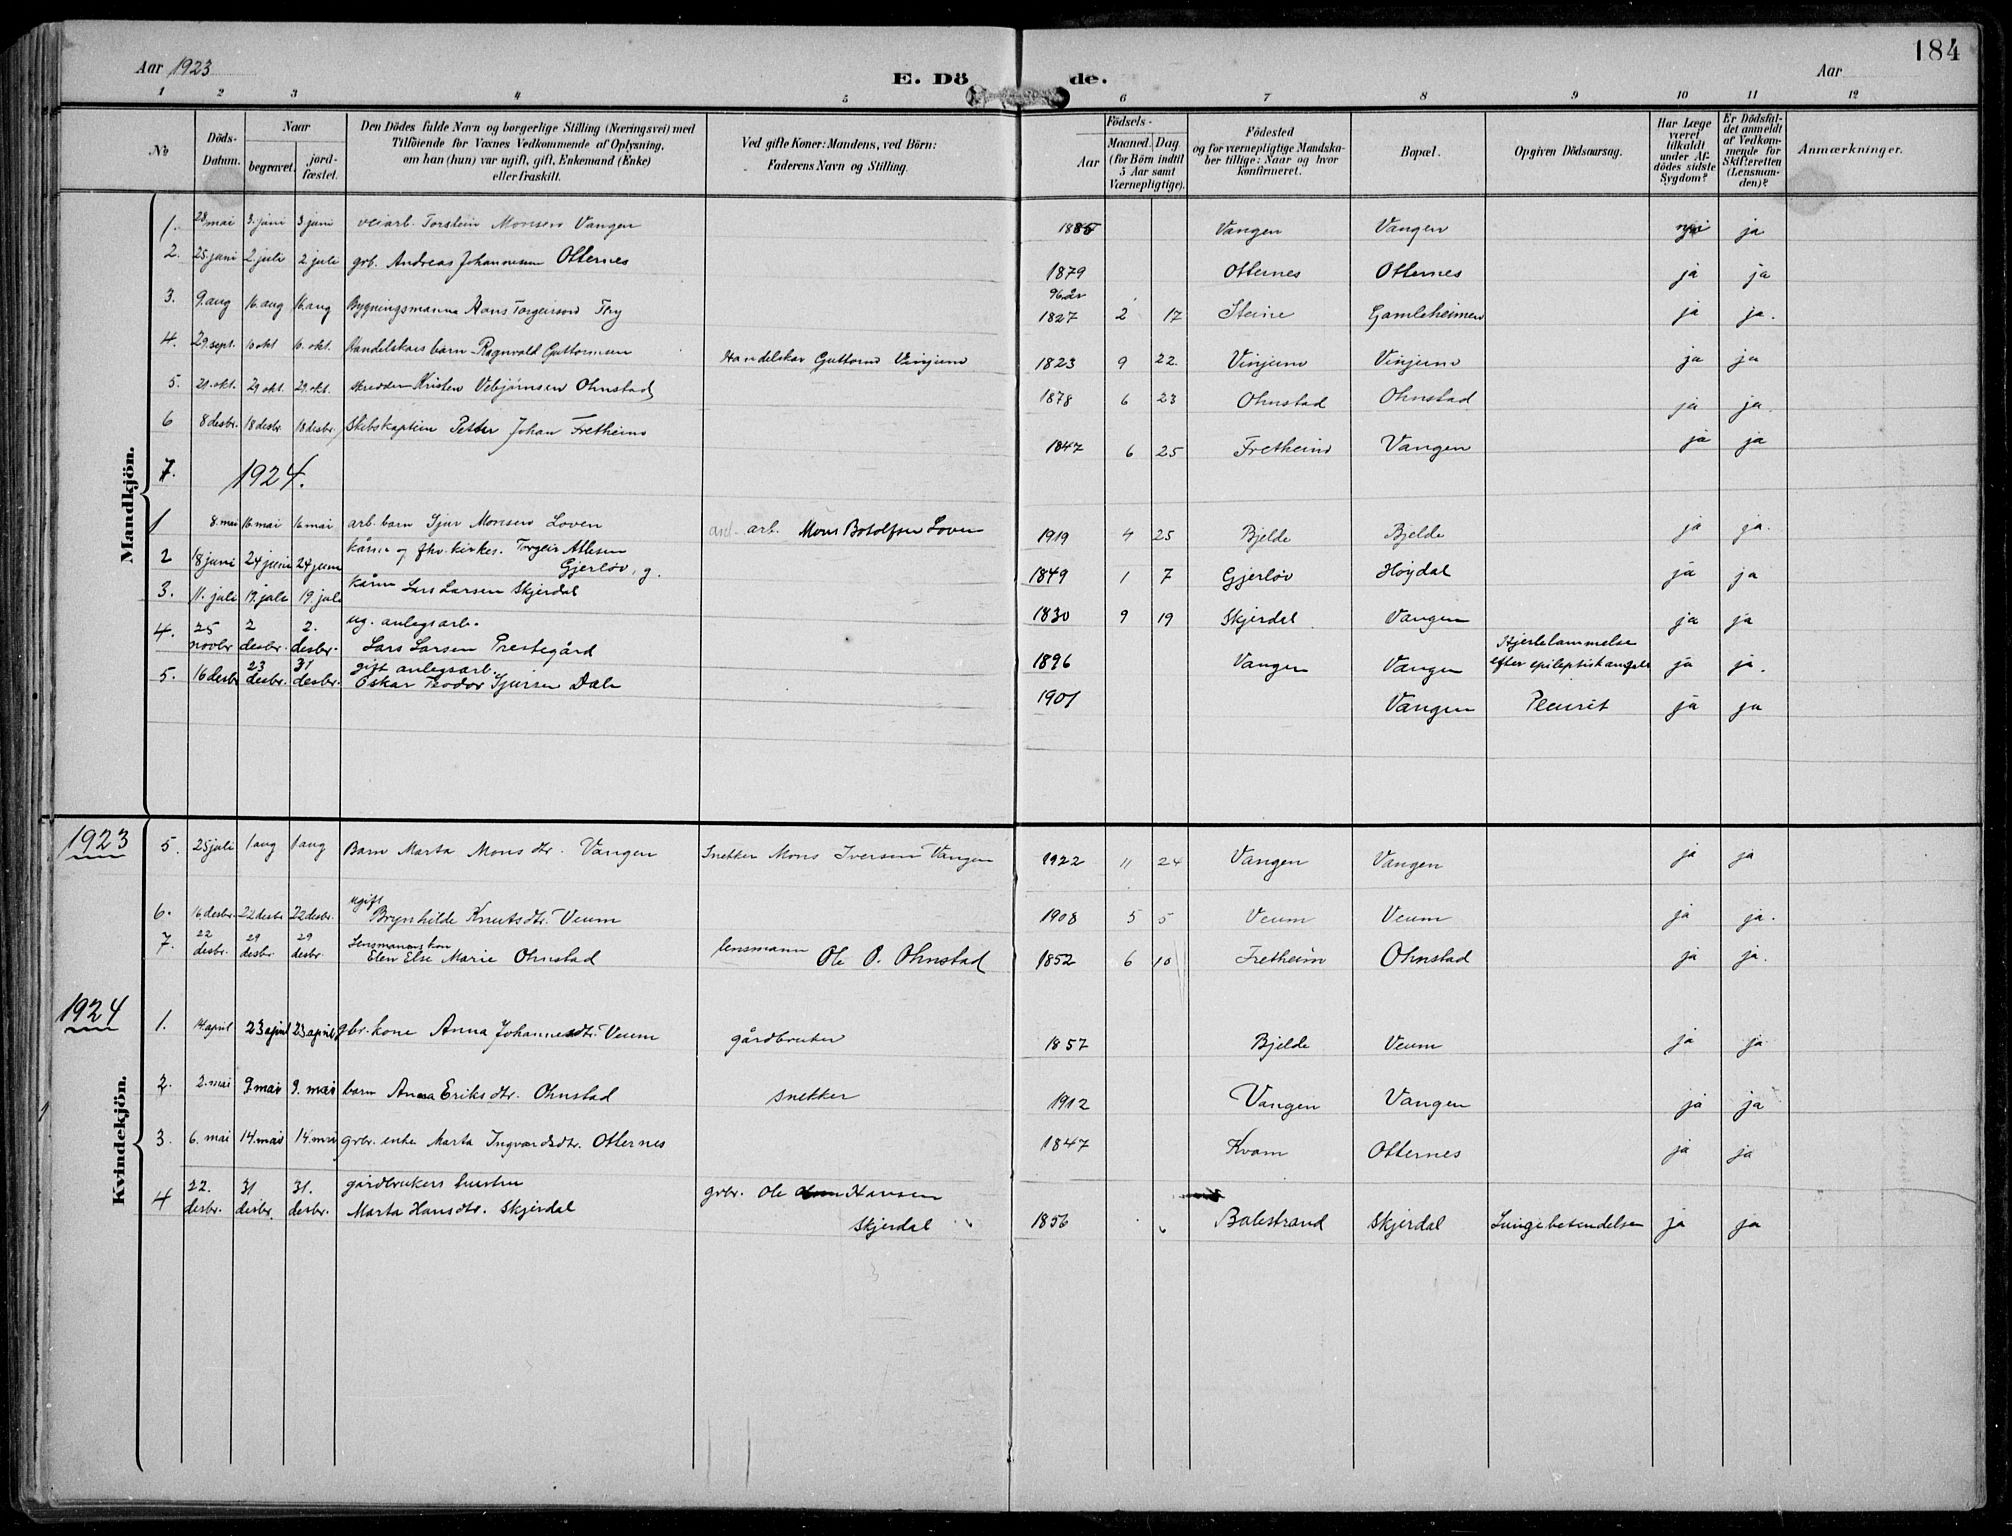 184
Aar 1923
E. Dö de.
Aar
1 2 3 4 5 6 7 8 9 10 11 12
No
Döds-Datum.
Naar
begravet.
jord-fæstet.
Den Dödes fulde Navn og borgerlige Stilling (Næringsvei) med
Tilföiende for Voxnes Vedkommende af Oplysning,
om han (hun) var ugift, gift, Enkemand (Enke)
eller fraskilt.
Ved gifte Koner: Mandens, ved Börn:
Faderens Navn og Stilling.
Födsels-
Aar
Maaned. Dag
(for Börn indtil
5 Aar samt
Værnepligtige).
Födested
og for værnepligtige Mandska-
ber tillige: Naar og hvor
konfirmeret.
Bopæl.
Opgiven Dödsaarsag.
Har Læge
været
tilkaldt
under Af-
dödes sidste
Sygdom?
Er Dödsfal-
det anmeldt
af Vedkom-
mende for
Skifteretten
(Lensman-
den)?
Anmærkninger.
Mandkjön.
1. 28 mai 3. juni 3 juni veiarb. Torstein Monsen Vangen 1885 Vangen Vangen ja
2. 25 juni 2. juli 2. juli grb. Andreas Johannesen Otternes 1879 Otternes Otternes ja ja
3. 9. aug 16. aug 16. aug Bygningsmanna Hans Torgeirson Fry 96 år 1827 2 17 Steine Gamleheimen ja ja.
4. 29. sept. 6 okt 6. okt. Handelskars barn Ragnvald Guttormsen Handelskar Guttorm Vinjum 1823 9 22. Vinjum Vinjum ja ja
5. 21. okt. 29 okt. 29. okt. skredder Kristen Vebjørnsen Ohnstad 1878 6 23 Ohnstad Ohnstad ja ja.
6 8 desbr. 18 desbr. 18 desbr. Skibskaptein Petter Johan Fretheim 1847 6 25 Fretheim Vangen ja ja
7. 1924.
1 8. mai 16 mai 16 mai arb. barn Sjur Monsen Loven arb. Mons Botolfsen Loven 1919 4 25 Bjelde Bjelde ja ja.
2 18 juni 24 juni 24 juni kårm og fhv. kirkes. Torgeir Atlesen
Gjerløv, g. 1849 1 7 Gjerløv Høydal ja ja
3. 11. juli 19. juli 19. juli kårm Lars Larsen Skjerdal 1830 9 19 Skjerdal Vangen ja ja
4. 25 novbr 2 desbr. 2. desbr. ug. anlegsarb.
Lars Larsen Prestegård 1896 Vangen Vangen Hjertelammelse
efter epileptisk anfald ja ja.
5. 16 desbr 23 desbr. 31 desbr. gift anlegsarb.
Oskar Teodor Sjursen Dale 1901 Vangen Pleurit ja ja
Kvindekjön.
1923
5. 25 juli 1 aug 1 aug Barn Marta Mons dtr. Vangen Snekker Mons Iversen Vangen 1922 11 24 Vangen Vangen ja ja
6. 16 desbr. 22 desbr 22 desbr. ugift
Brynhilde Knutsdtr. Veum 1908 5 5 Veum Veum ja ja.
7. 22 desbr. 29 desbr. 29 desbr. Lensmannskon
Elen Else Marie Ohnstad lensmann Ole O. Ohnstad 1852 6 10 Fretheim Ohnstad ja ja.
1924
1. 14. april 23 april 23 april gbr. kone Anna Johannesdtr. Veum gårdbruker 1857 Bjelde Veum ja ja
2. 2. mai 9. mai 9. mai barn Anna Eriksdtr. Ohnstad snekker 1912 Vangen Vangen ja ja
3. 6. mai 14. mai 14. mai grbr. enke Marta Ingvardsdtr. Otternes 1847 Kvam Otternes ja ja
4 22. desbr. 31 desbr. 31. desbr. gårdbrukers hustru
Marta Hansdtr. Skjerdal grbr. Ole Hansen
Skjerdal 1856 Balestrand Skjerdal Lungebetendelse ja ja